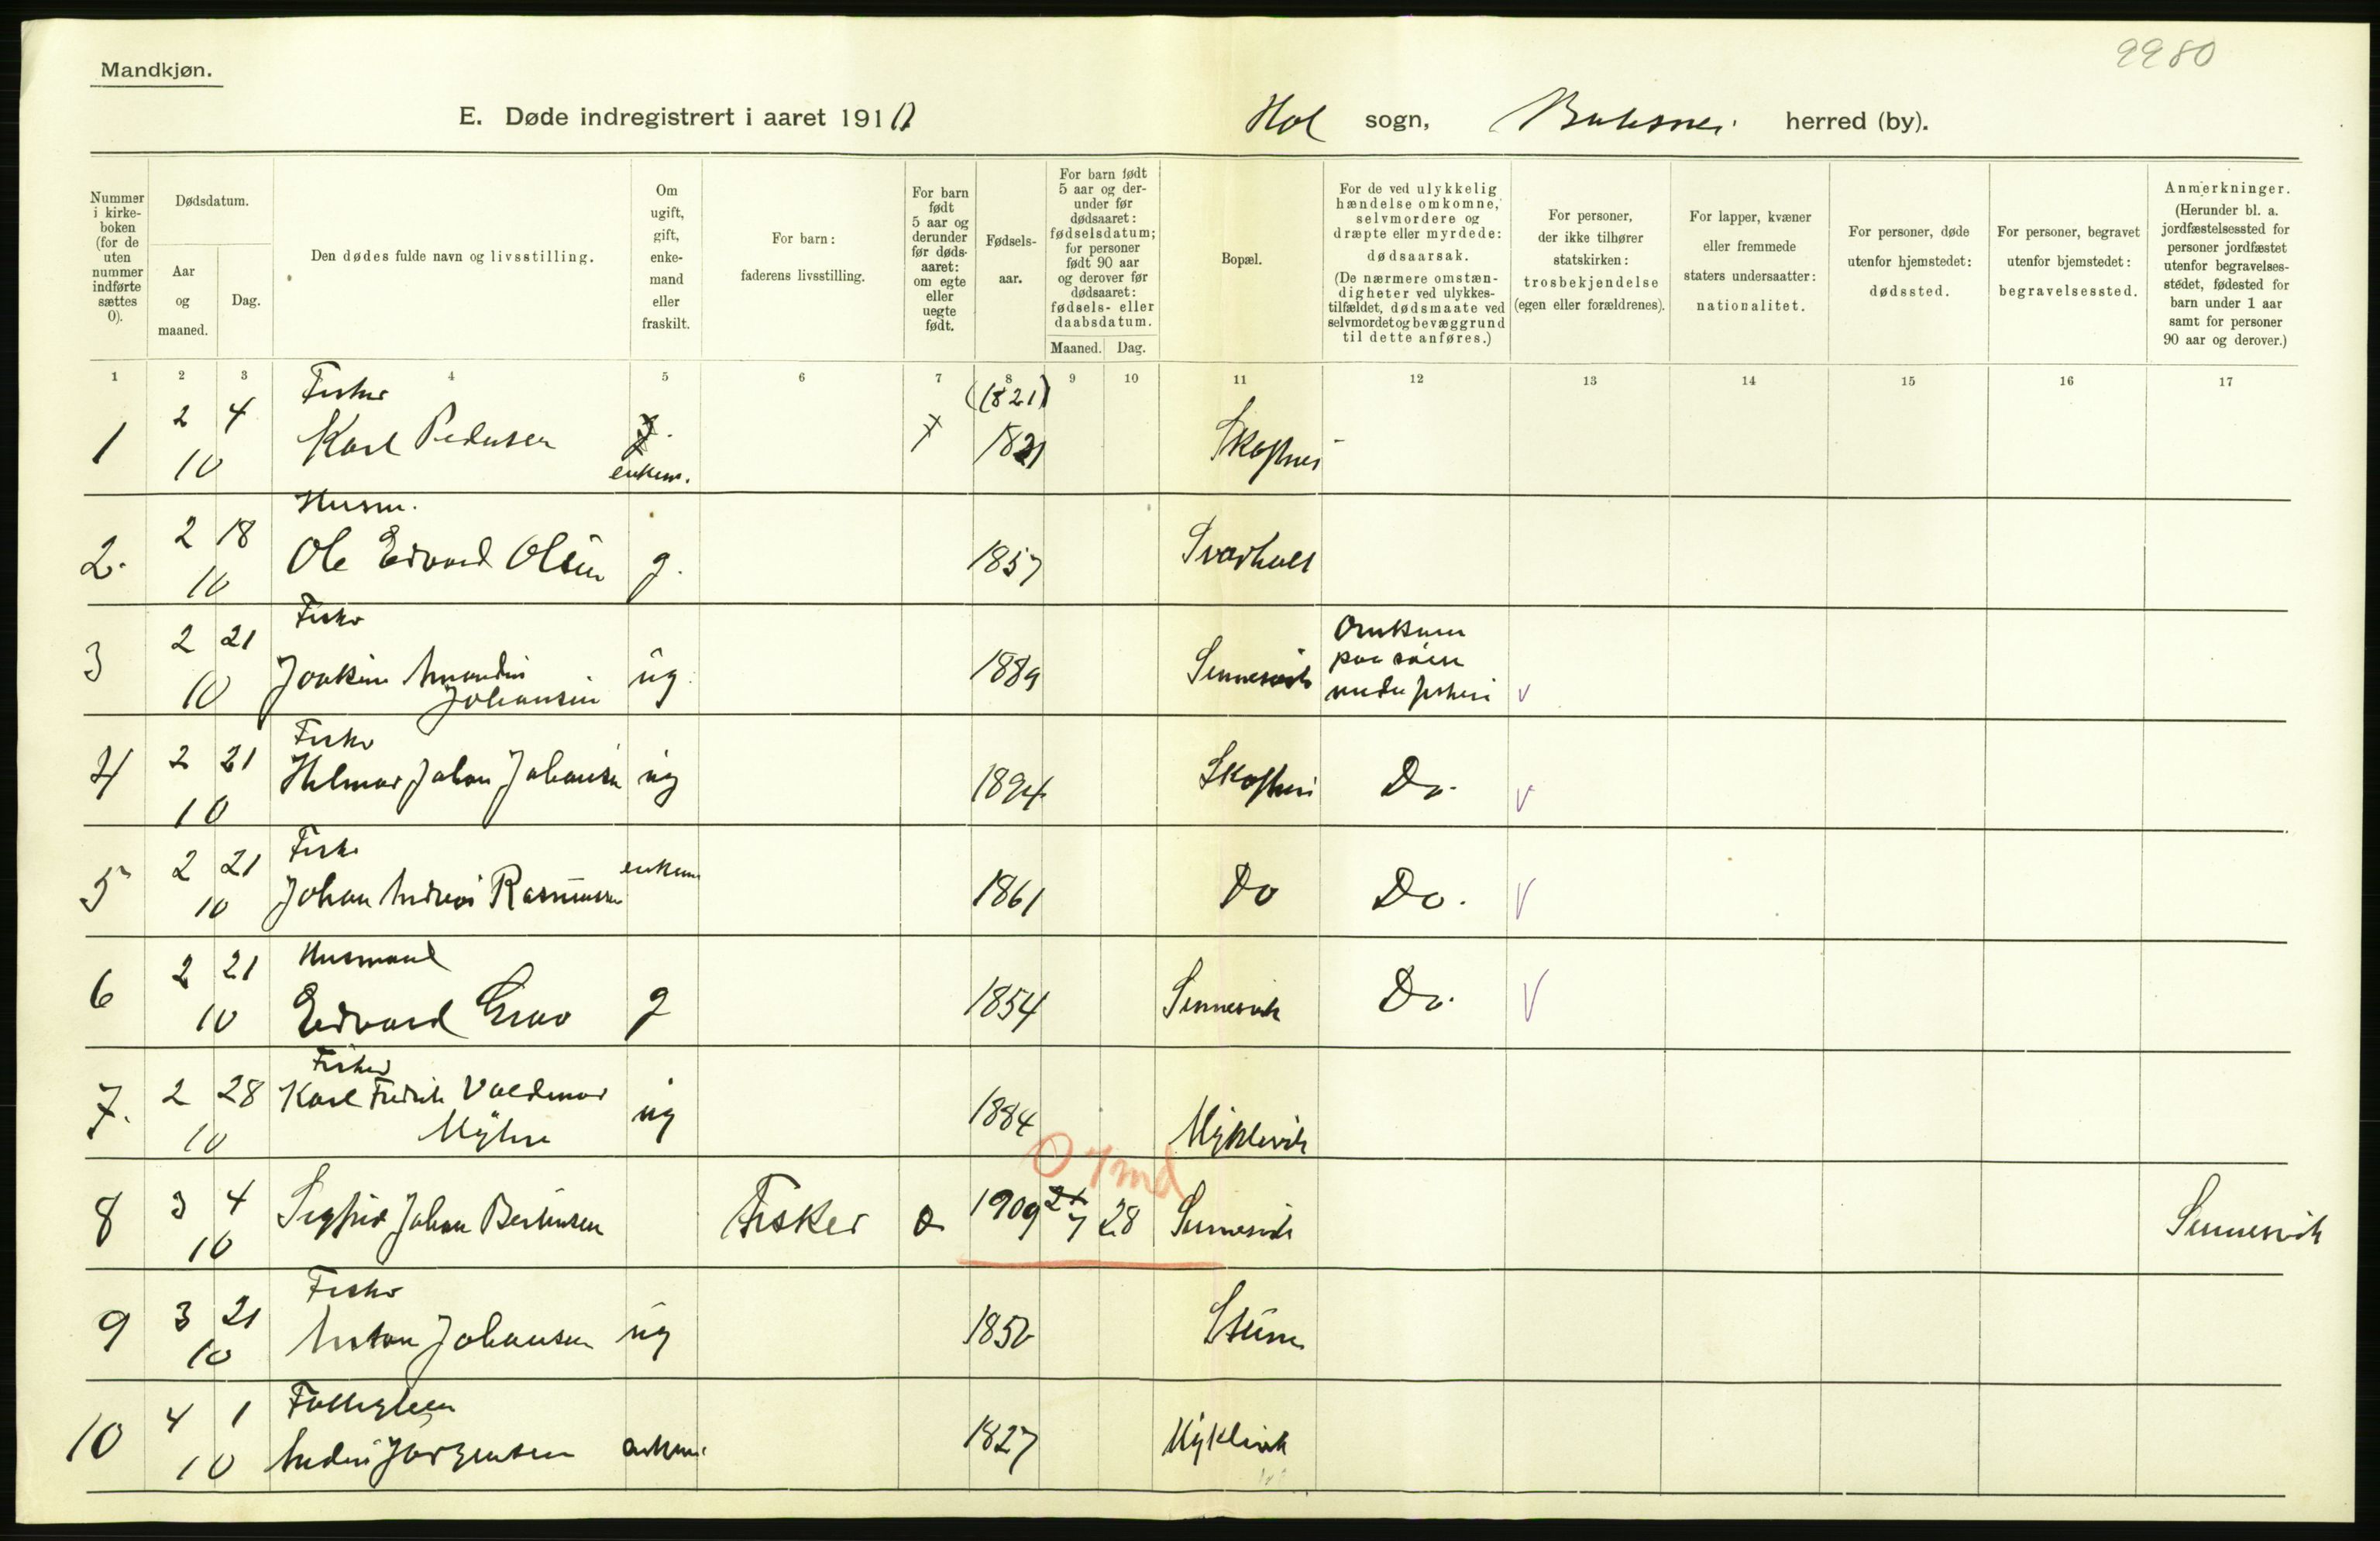 2280
Mandkjøn.
E. Døde indregistrert i aaret 1910. Hol sogn, Buksnes herred (by).
Nummer i kirke-boken (for de uten nummer indførte sættes 0).
Dødsdatum.
Aar og maaned.
Dag.
Den dødes fulde navn og livsstilling.
Om ugift, gift, enke-mand eller fraskilt.
For barn: faderens livsstilling.
For barn født 5 aar og derunder før døds-aaret: om egte eller uegte født.
Fødsels-aar.
For barn født 5 aar og der-under før dødsaaret: fødselsdatum; for personer født 90 aar og derover før dødsaaret: fødsels- eller daabsdatum.
Maaned. Dag.
Bopæl.
For de ved ulykkelig hændelse omkomne, selvmordere og dræpte eller myrdede: dødsaarsak. (De nærmere omstæn-digheter ved ulykkes-tilfældet, dødsmaate ved selvmordet og bevæggrund til dette anføres.)
For personer, der ikke tilhører statskirken: trosbekjendelse (egen eller forældrenes).
For lapper, kvæner eller fremmede staters undersaatter: nationalitet.
For personer, døde utenfor hjemstedet: dødssted.
For personer, begravet utenfor hjemstedet: begravelsessted.
Anmerkninger. (Herunder bl. a. jordfæstelsessted for personer jordfæstet utenfor begravelses-stedet, fødested for barn under 1 aar samt for personer 90 aar og derover.)
1 2 3 4 5 6 7 8 9 10 11 12 13 14 15 16 17
Fisker (1821)
1 2 4 Karl Pedersen 1821 Skafnes
10 enkem.
Husm.
2. 2 18 Ole Edvard Olsen g. 1857 Svarholt
10
Fisker Omkom
3 2 21 Joakim Amandus ug. 1889 Sennesvik paa søen
10 Johansen under fiskeri
Fisker
4 2 21 Hilmar Johan Johansen ug 1894 Skafnes Do.
10
Fisker
5 2 21 Johan Andreas Rasmussen enkem 1861 Do Do.
10
Husmand
6 2 21 Edvard Grav g 1854 Sennesvik Do.
10
Fisker
7. 2 28 Karl Fredrik Valdemar ug 1884 Myklevik
10 Myhre
8 3 4 Sigfrid Johan Berntsen Fisker 1909 7 28 Sennesvik Sennesvik
10
Fisker
9 3 21 Anton Johansen ug 1850 Steine
10
10 4 1 Anders Jørgensen enkem. 1827 Myklevik
10